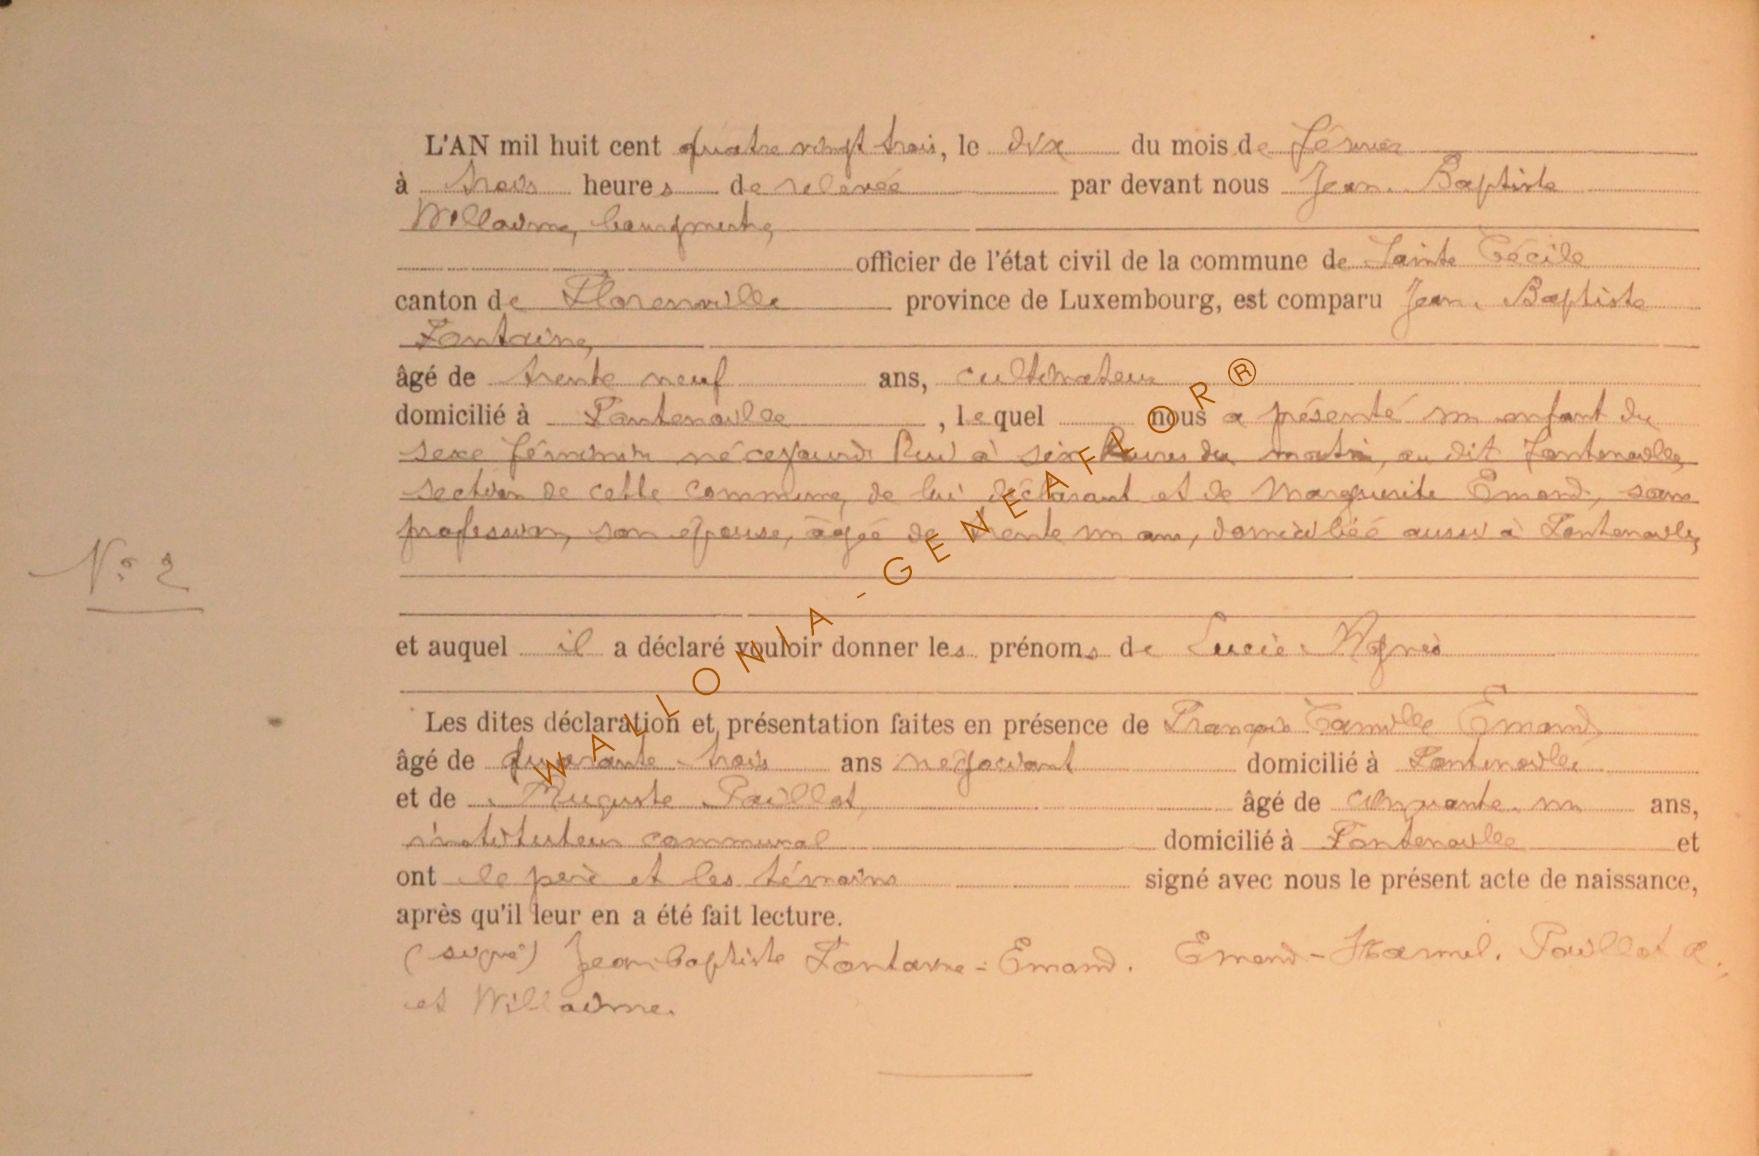 L'AN mil huit cent quatre vingt trois, le dix du mois de février
à trois heures de relevée par devant nous Jean-Baptiste
Willaime, bourgmestre,
officier de l'état civil de la commune de Sainte Cécile
canton de Florenville province de Luxembourg, est comparu Jean-Baptiste
Fontaine,
âgé de trente neuf ans, cultivateur
domicilié à Fontenoille, lequel nous a présenté un enfant du
sexe féminin né cejourd'hui à six heures du matin, au dit Fontenoille,
section de cette commune, de lui déclarant et de Marguerite Emond, sans
profession, son épouse, âgée de trente un ans, domiciliée aussi à Fontenoille,
N° 2
et auquel il a déclaré vouloir donner les prénoms de Lucie-Agnès
Les dites déclaration et présentation faites en présence de François Camille Emond,
âgé de quarante-trois ans négociant domicilié à Fontenoille
et de Auguste Paillot, âgé de cinquante-un ans,
instituteur communal domicilié à Fontenoille et
ont le père et les témoins signé avec nous le présent acte de naissance,
après qu'il leur en a été fait lecture.
(signé) Jean-baptiste Fontaine-Emond. Emond-Hamel. Paillot A.
et Willaime.
WALLONIA-GENEAFLOR®